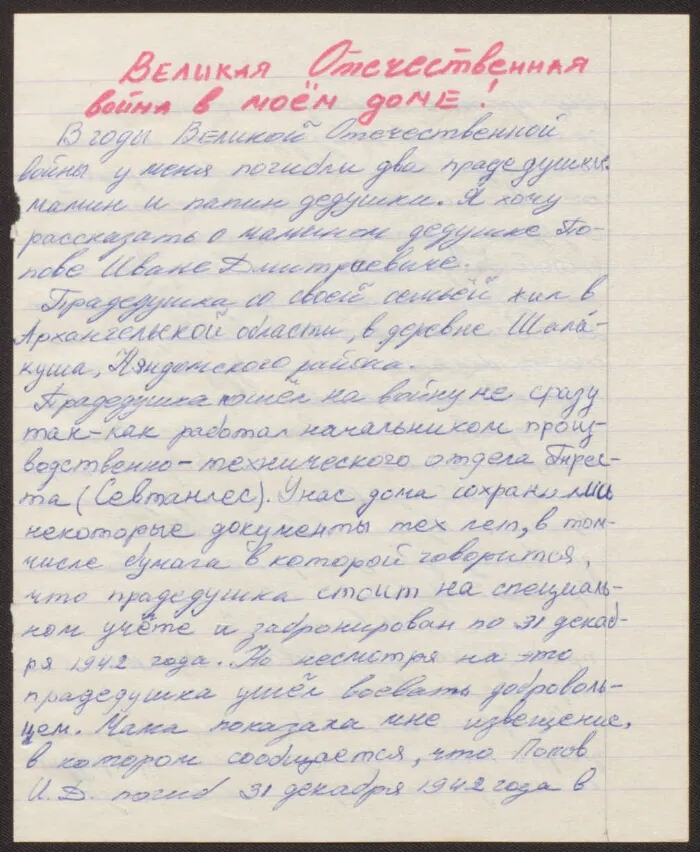 Великая Отечественная
война в моём доме!
В годы Великой Отечественной
войны у меня погибли два прадедушки.
мамин и папин дедушки. Я хочу
рассказать о мамином дедушке По-
пове Иване Дмитриевиче.
Прадедушка со своей семьёй жил в
Архангельской области, в деревне Шала-
куша, Няндомского района.
Прадедушка пошёл на войну не сразу
так-как работал начальником произ-
водственно-технического отдела
та (Севтранлес). У нас дома сохранились
некоторые документы тех лет, в том-
числе бумага в которой говорится,
что прадедушка стоит на специаль-
ном учёте и забронирован по 31 декаб-
ря 1942 года. Но несмотря на это
прадедушка ушёл воевать доброволь-
цем. Мама показала мне извещение,
в котором сообщается, что Попов
И.Д. погиб 31 декабря 1942 года в